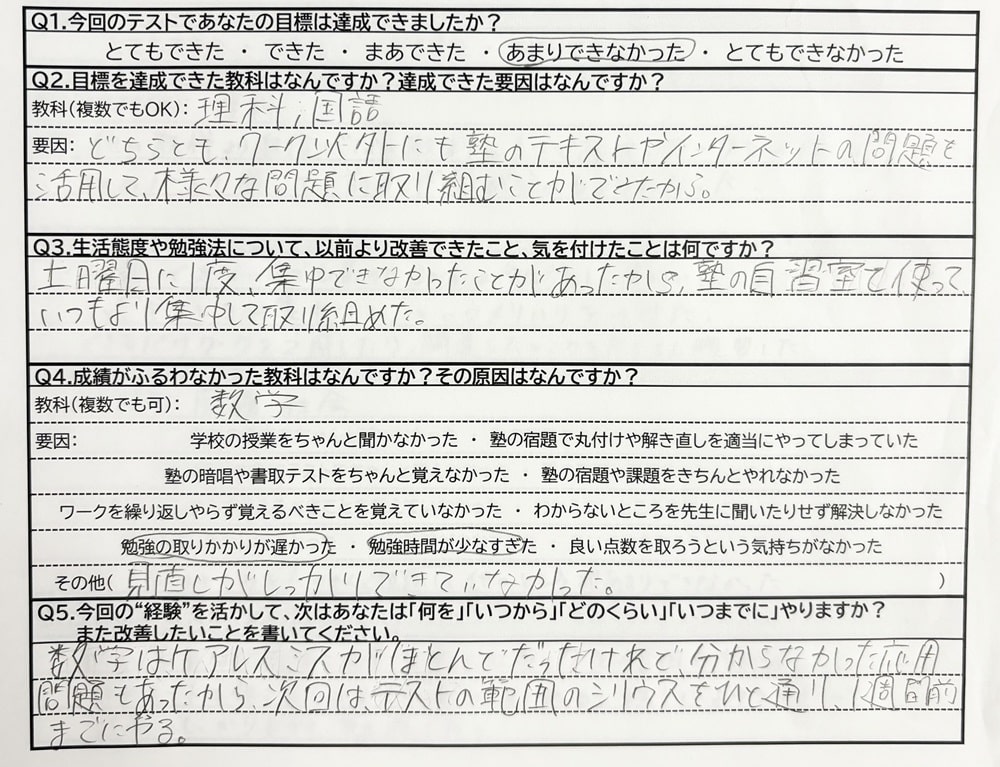 Q1.今回のテストであなたの目標は達成できましたか？
とてもできた ・ できた ・ まあできた ・ あまりできなかった ・ とてもできなかった
Q2.目標を達成できた教科はなんですか？達成できた要因はなんですか？
教科(複数でもOK): 理科, 国語
要因: どちらとも、ワーク以外にも塾のテキストやインターネットの問題も
活用して、様々な問題に取り組むことができたから。
Q3.生活態度や勉強法について、以前より改善できたこと、気を付けたことは何ですか？
土曜日に1度、集中できなかったことがあったから、塾の自習室を使って、
いつもより集中して取り組めた。
Q4.成績がふるわなかった教科はなんですか？その原因はなんですか？
教科(複数でも可): 数学
要因: 学校の授業をちゃんと聞かなかった ・ 塾の宿題で丸付けや解き直しを適当にやってしまっていた
塾の暗唱や書取テストをちゃんと覚えなかった ・ 塾の宿題や課題をきちんとやれなかった
ワークを繰り返しやらず覚えるべきことを覚えていなかった ・ わからないところを先生に聞いたりせず解決しなかった
勉強の取りかかりが遅かった ・ 勉強時間が少なすぎた ・ 良い点数を取ろうという気持ちがなかった
その他( 見直しがしっかりできていなかった。 )
Q5.今回の“経験”を活かして、次はあなたは「何を」「いつから」「どのくらい」「いつまでに」やりますか？
また改善したいことを書いてください。
数学はケアレスミスがほとんどだったけれど、分からなかった応用
問題もあったから、次回は、テストの範囲のシリウスをひと通り、1週間前
までにやる。